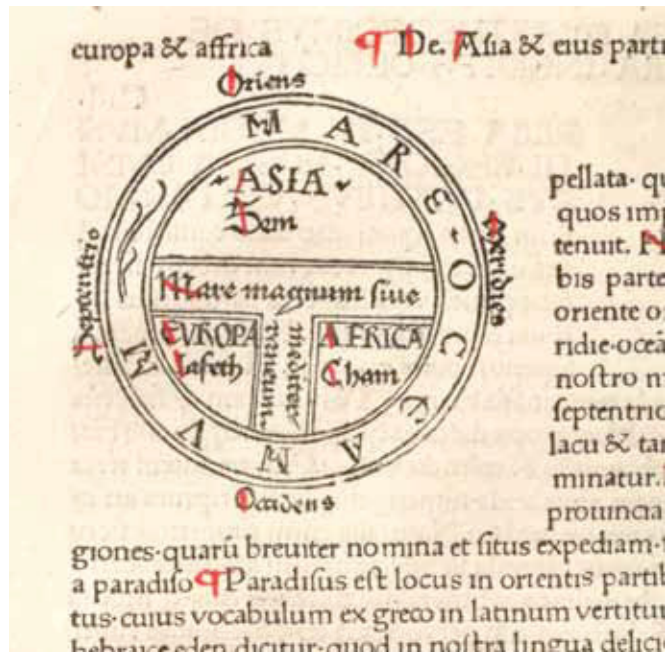 europa & affrica ¶ De. Asia & eius parti
Oriens
MARE OCEANUM
ASIA
Sem
Mare magnum siue
mediterraneum
EUROPA
Iafeth
AFRICA
Cham
Meridies
Occidens
pellata· qu
quos imp
tenuit.
bis parte
oriente o
ridie·oceā
nostro m
septentrio
lacu & tan
minatur.
prouincia
giones·quarū breuiter nomina et situs expediam·
a paradiso ¶ Paradisus est locus in orientis partib
tus·cuius vocabulum ex greco in latinum vertitur
hebraice eden dicitur·quod in nostra lingua delici